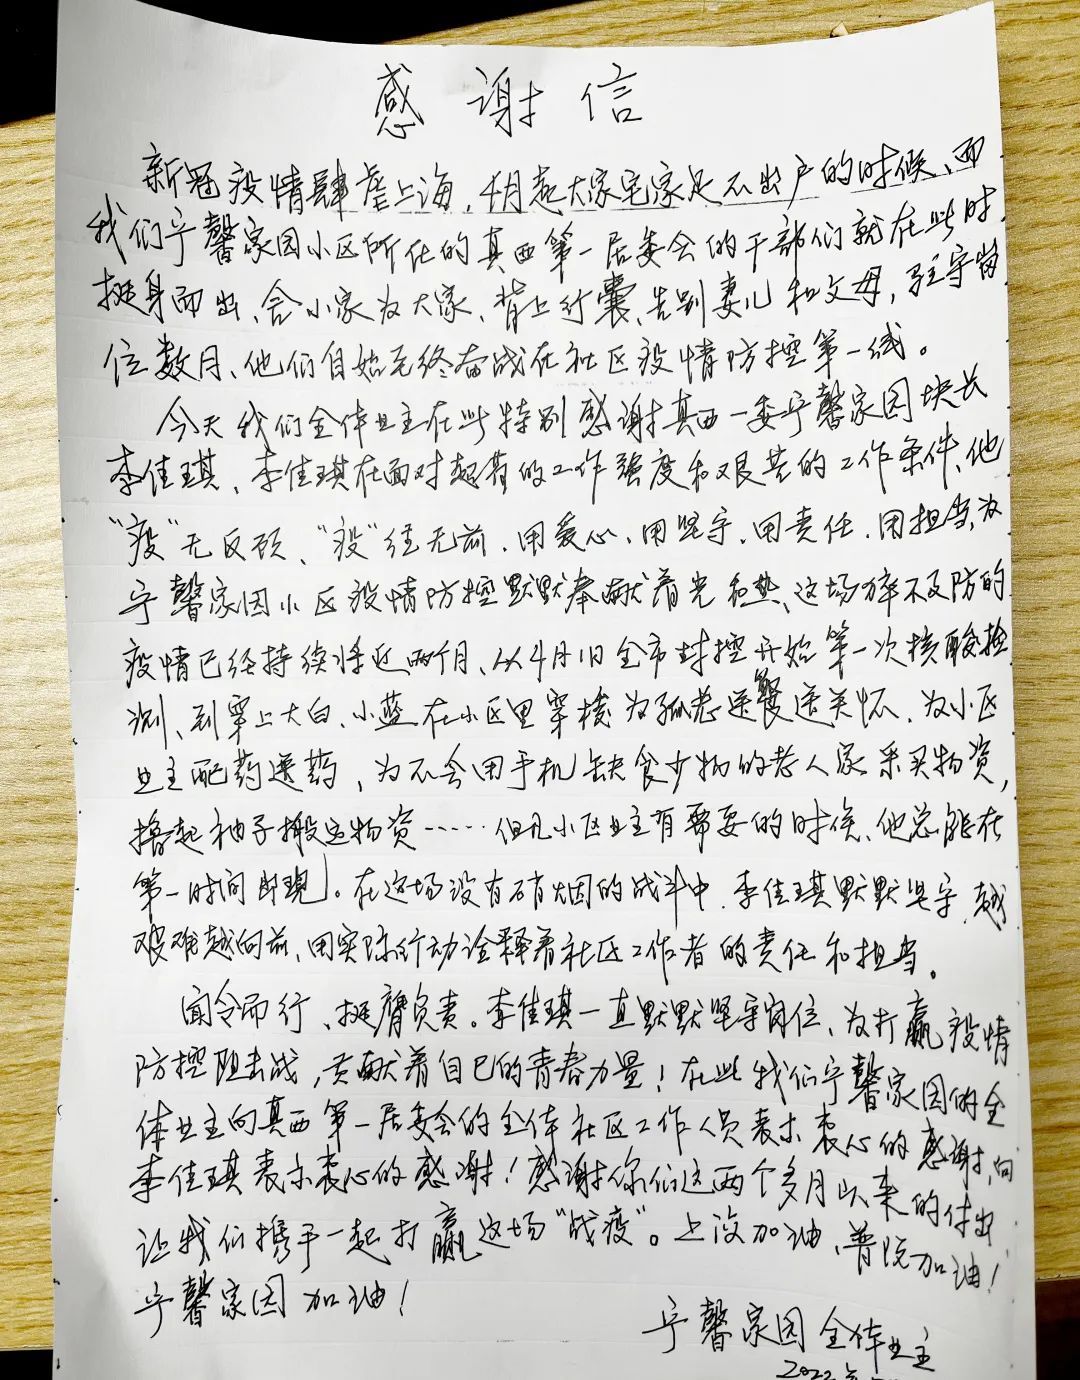 感谢信
新冠疫情肆虐上海，4月起大家宅家足不出户的时候、而
我们宁馨家园小区所在的真西第一居委会的干部们就在此时
挺身而出、舍小家为大家、背上行囊、告别妻儿和父母，驻守岗
位数月、他们自始至终奋战在社区疫情防控第一线。
今天我们全体业主在此特别感谢真西一委宁馨家园块长
李佳琪、李佳琪在面对超荷的工作强度和艰苦的工作条件、他
“疫”无反顾、“疫”往无前、用爱心、用坚守、用责任、用担当、为
宁馨家园小区疫情防控默默奉献着光和热、这场猝不及防的
疫情已经持续将近两个月、从4月1日全市封控开始第一次核酸检
测、到穿上大白、小蓝在小区里穿梭为孤老送餐送关怀、为小区
业主配药送药，为不会用手机缺食少物的老人家采买物资，
撸起袖子搬运物资……但凡小区业主有需要的时候、他总能在
第一时间出现。在这场没有硝烟的战斗中、李佳琪默默坚守、越
艰难越向前、用实际行动诠释着社区工作者的责任和担当。
闻令而行、挺膺负责。李佳琪一直默默坚守岗位、为打赢疫情
防控阻击战，贡献着自己的青春力量！在此我们宁馨家园的全
体业主向真西第一居委会的全体社区工作人员表示衷心的感谢，向
李佳琪表示衷心的感谢！感谢你们这两个多月以来的付出
让我们携手一起打赢这场“战疫”。上海加油、普陀加油！
宁馨家园加油！
宁馨家园全体业主
2022年